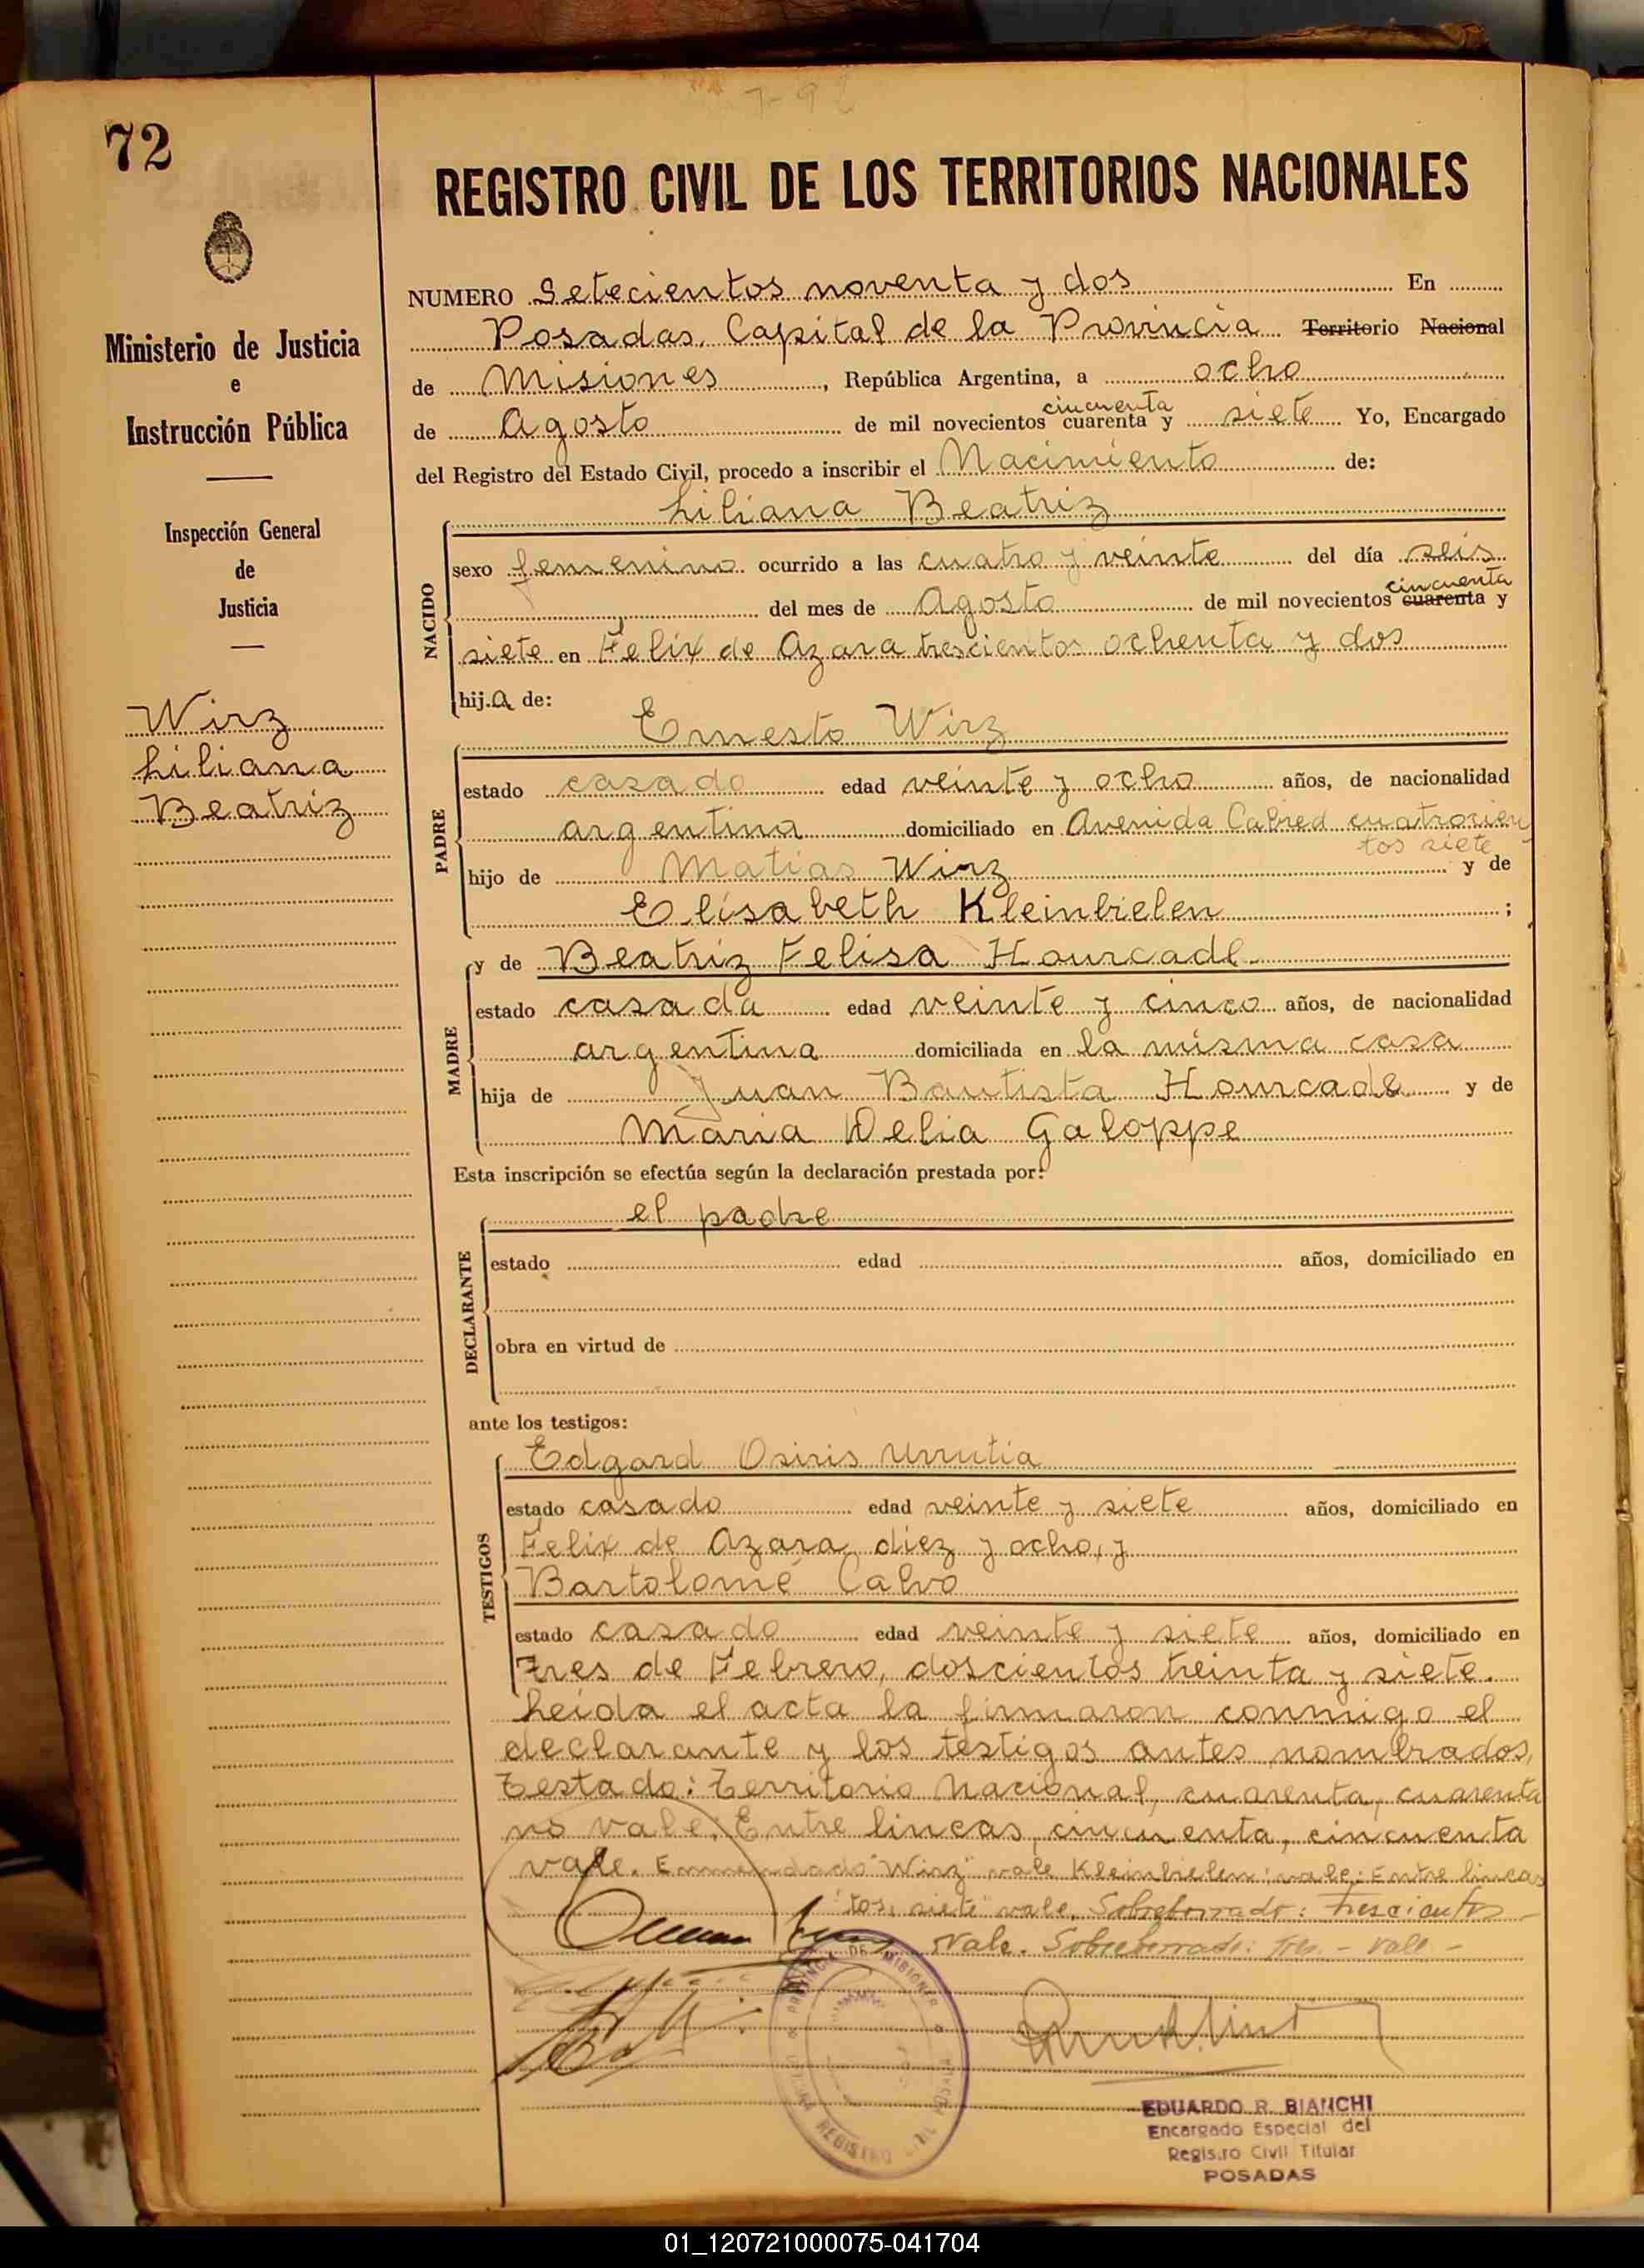 7-92
72
REGISTRO CIVIL DE LOS TERRITORIOS NACIONALES
Ministerio de Justicia
e
Instrucción Pública
Inspección General
de
Justicia
Wirz
Liliana
Beatriz
NUMERO Setecientos noventa y dos En
Posadas, Capital de la Provincia Territorio Nacional
de Misiones, República Argentina, a ocho
de Agosto de mil novecientos cuarenta y siete Yo, Encargado
cincuenta
del Registro del Estado Civil, procedo a inscribir el Nacimiento de:
Liliana Beatriz
NACIDO
sexo femenino ocurrido a las cuatro y veinte del día seis
del mes de Agosto de mil novecientos cuarenta y
cincuenta
siete en Felix de Azara trescientos ochenta y dos
hija de:
Ernesto Wirz
PADRE
estado casado edad veinte y ocho años, de nacionalidad
argentina domiciliado en Avenida Cabred cuatrocien
tos siete
hijo de Matias Wirz y de
Elisabeth Kleinbielen;
y de Beatriz Felisa Hourcade
MADRE
estado casada edad veinte y cinco años, de nacionalidad
argentina domiciliada en la misma casa
hija de Juan Bautista Hourcade y de
Maria Delia Galoppe
Esta inscripción se efectúa según la declaración prestada por:
el padre
DECLARANTE
estado edad años, domiciliado en
obra en virtud de
ante los testigos:
Edgard Osiris Urrutia
TESTIGOS
estado casado edad veinte y siete años, domiciliado en
Felix de Azara diez y ocho, y
Bartolomé Calvo
estado casado edad veinte y siete años, domiciliado en
Tres de Febrero, doscientos treinta y siete.
Leida el acta la firmaron conmigo el
declarante y los testigos antes nombrados,
Testado: Territorio Nacional, cuarenta, cuarenta
no vale. Entre lineas, cincuenta, cincuenta
vale. Enmendado "Wirz" vale Kleinbielen: vale: Entre lineas
"tos, siete" vale. Sobreborrado: trescientos
vale. Sobreborrado: Tres. - vale -
PROVINCIA DE MISIONES
REGISTRO CIVIL
EDUARDO R. BIANCHI
Encargado Especial del
Regis.ro Civil Titular
POSADAS
01_120721000075-041704